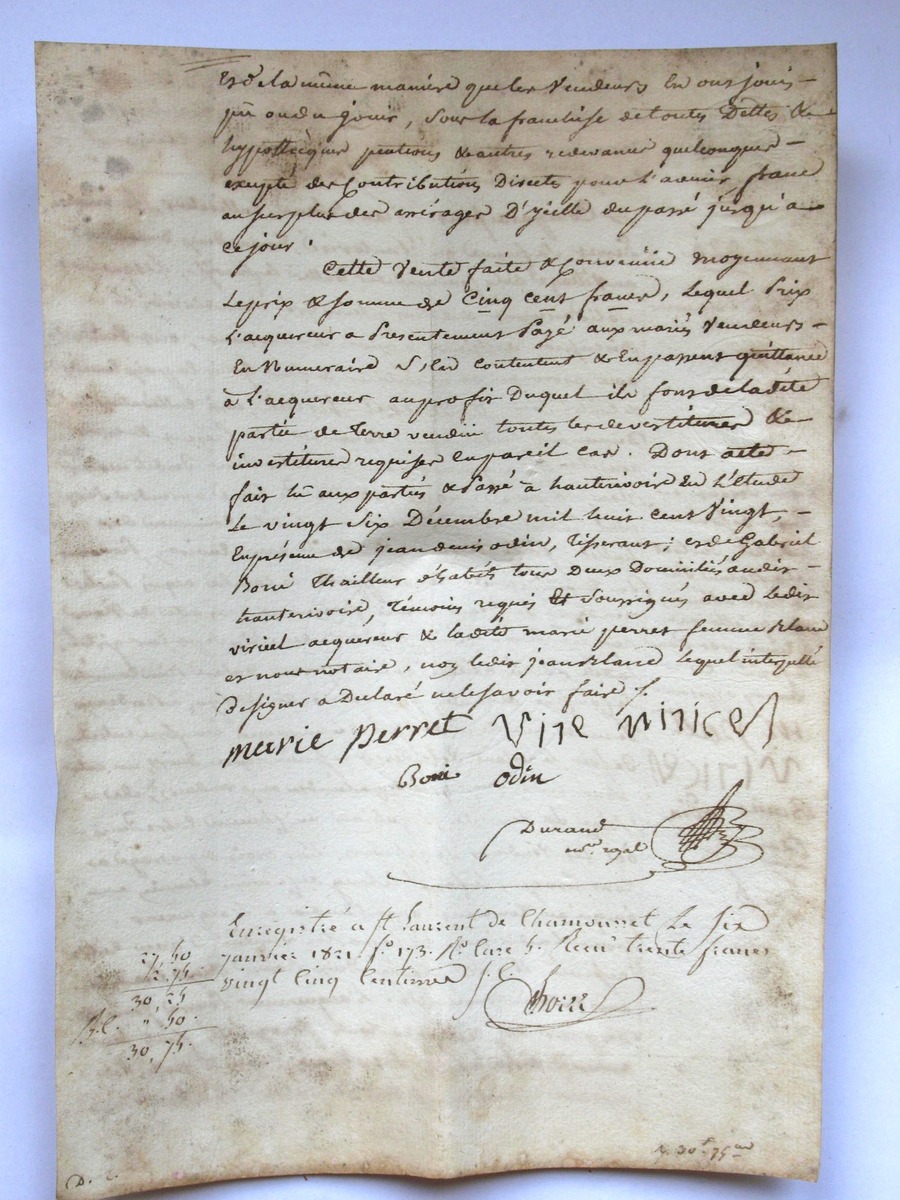 Et de la même maniere que les Vendeurs En ont joui -
pû ou du jouir, Sous la franchise de toutes Dettes &
hypotteques pentions & autres redevance quelconques -
exepté des Contributions Directe pour l'avenir, franc
au surplus des arrérages D'ycelle du passé jusqu'a
ce jour.
Cette Vente faite & Convenüe moyennant
Le prix & somme de Cinq cent francs, Lequel Prix
L'acquereur a Presentement Payé aux mariés Vendeurs -
En Numeraire S'en contentent & En passent quittance
à L'acquereur au profit Duquel ils font de ladite
partie de terre vendue toutes les devestitures &
investitures requises en pareil cas. Dont acte -
fait lû aux parties & Passé à hauterivoire En L'étude
Le vingt Six Décembre mil huit cent Vingt, -
En présence de jean denis odin, Tisserant; et de Gabriel
Boni Thailleur d'habits tous Deux Domiciliés audit -
hauterivoire, Témoins requis & Soussignés avec Ledit
viricel acquereur & ladite marie perret femme
et nous notaire, non ledit jean lequel interpellé
De signer a Declaré ne le savoir faire /.
marie perret Vire viricel
Boni odin
Durand
nore. royal
Enregistré a St Laurent de Chamousset Le six
janvier 1821 fo. 173. Ro. Case 5. Recu trente francs
vingt cinq Centimes
27, 50
2, 75
30, 25
" 50.
30, 75.
30 f 75
D. C.